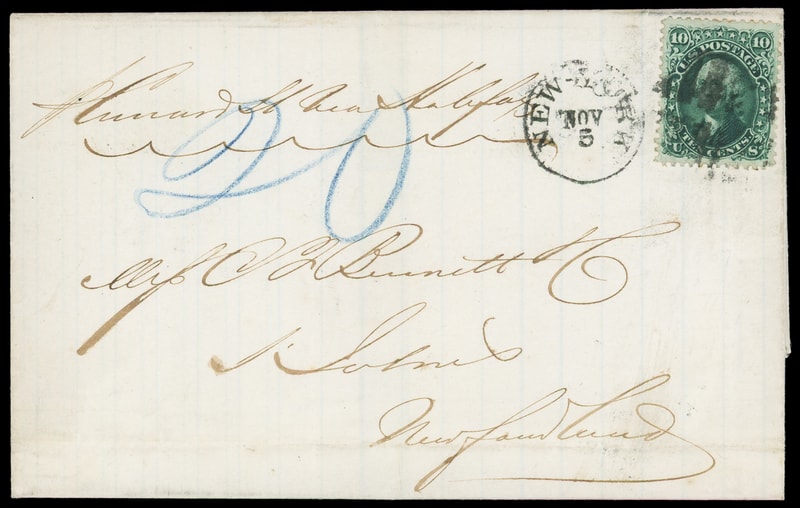 10 10
U.S. POSTAGE
TEN CENTS
U. S.
NEW-YORK
NOV
5
Cunard St via Halifax
20
Mess C F Bennett & Co
St Johns
Newfoundland